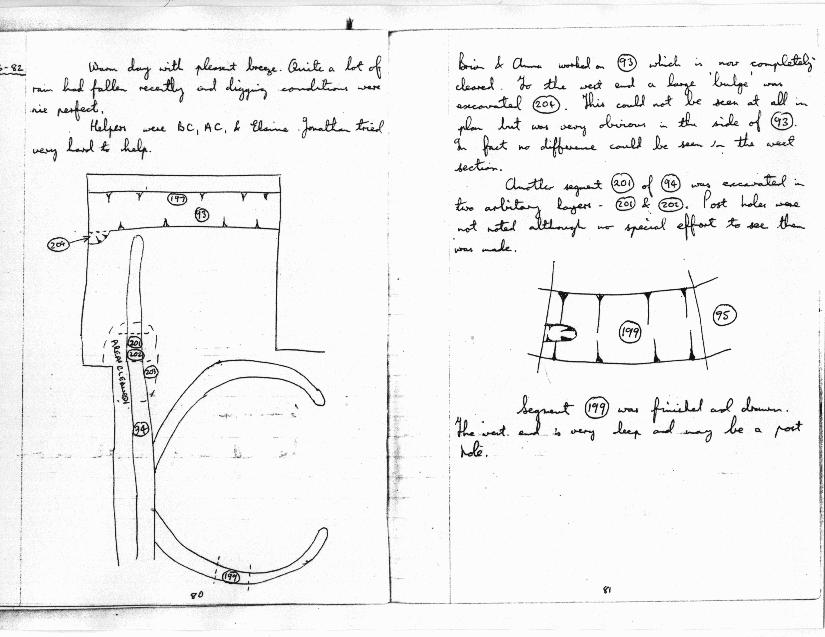 -82
Warm day with pleasent breeze. Quite a lot of
rain had fallen recently and digging conditions were
nie perfect.
Helpers were BC, AC, & Elaine. Jonathan tried
very hard to help.
197
93
204
201
202
AREA CLEANED
203
94
199
80
Brian & Anna worked on 93 which is now completely
cleared. To the west end a large 'bulge' was
excavated 204. This could not be seen at all in
plan but was very obvious in the side of 93.
In fact no difference could be seen in the west
section.
Another segment 201 of 94 was excavated in
two arbitary layers - 201 & 202. Post holes were
not noted although no special effort to see them
was made.
95
199
Segment 199 was finished and drawn.
The west end is very deep and may be a post
hole.
81